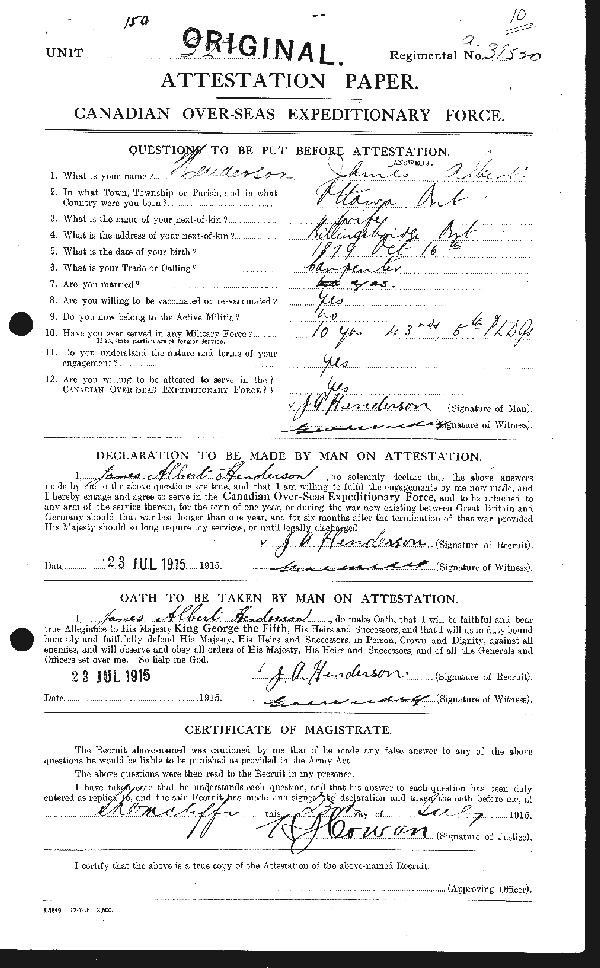 150
10
UNIT ORIGINAL. Regimental No.
ATTESTATION PAPER.
CANADIAN OVER-SEAS EXPEDITIONARY FORCE.
QUESTIONS TO BE PUT BEFORE ATTESTATION.
1. What is your name? Henderson James Albert
2. In what Town, Township or Parish, and in what
Country were you born? Ottawa Ont
3. What is the name of your next-of-kin?
4. What is the address of your next-of-kin? Billingsbridge Ont
5. What is the date of your birth? 1879 Oct 16th
6. What is your Trade or Calling? Carpenter
7. Are you married? yes.
8. Are you willing to be vaccinated or re-vaccinated? Yes
9. Do you now belong to the Active Militia? no
10. Have you ever served in any Military Force? 10 yrs 43rd 5th PLDGs
If so, state particulars of former Service.
11. Do you understand the nature and terms of your
engagement? yes
12. Are you willing to be attested to serve in the
CANADIAN OVER-SEAS EXPEDITIONARY FORCE? Yes
J A Henderson (Signature of Man).
(Signature of Witness).
DECLARATION TO BE MADE BY MAN ON ATTESTATION.
I, James Albert Henderson, do solemnly declare that the above answers
made by me to the above questions are true, and that I am willing to fulfil the engagements by me now made, and
I hereby engage and agree to serve in the Canadian Over-Seas Expeditionary Force, and to be attached to
any arm of the service therein, for the term of one year, or during the war now existing between Great Britain and
Germany should that war last longer than one year, and for six months after the termination of that war provided
His Majesty should so long require my services, or until legally discharged.
J A Henderson (Signature of Recruit).
Date 23 JUL 1915 1915. (Signature of Witness).
OATH TO BE TAKEN BY MAN ON ATTESTATION.
I, James Albert Henderson, do make Oath, that I will be faithful and bear
true Allegiance to His Majesty King George the Fifth, His Heirs and Successors, and that I will as in duty bound
honestly and faithfully defend His Majesty, His Heirs and Successors, in Person, Crown and Dignity, against all
enemies, and will observe and obey all orders of His Majesty, His Heirs and Successors, and of all the Generals and
Officers set over me. So help me God.
23 JUL 1915 J A Henderson (Signature of Recruit).
Date 1915. (Signature of Witness).
CERTIFICATE OF MAGISTRATE.
The Recruit above-named was cautioned by me that if he made any false answer to any of the above
questions he would be liable to be punished as provided in the Army Act.
The above questions were then read to the Recruit in my presence.
I have taken care that he understands each question, and that his answer to each question has been duly
entered as replied to, and the said Recruit has made and signed the declaration and taken the oath before me, at
this day of July 1915.
Cowan (Signature of Justice).
I certify that the above is a true copy of the Attestation of the above-named Recruit.
(Approving Officer).